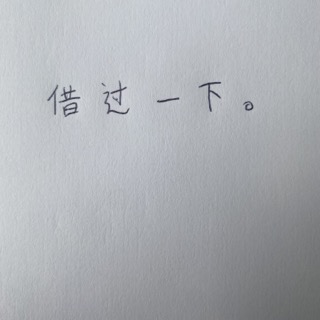 借过一下。